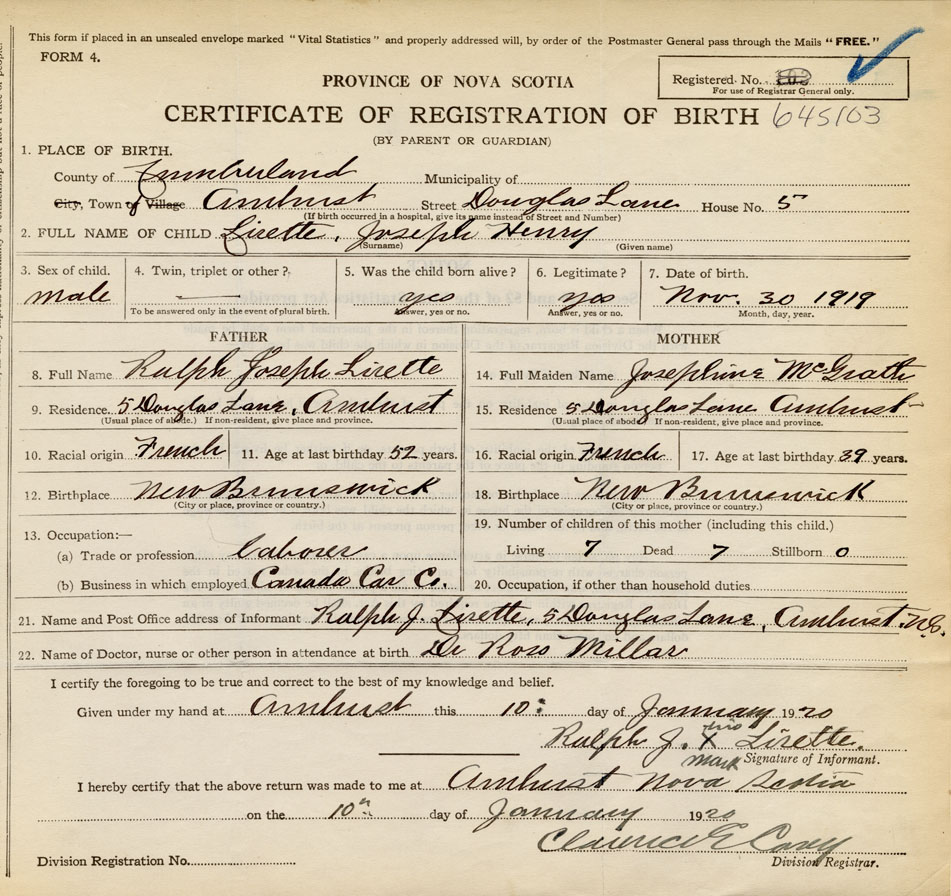 This form if placed in an unsealed envelope marked "Vital Statistics" and properly addressed will, by order of the Postmaster General pass through the Mails "FREE."
FORM 4.
PROVINCE OF NOVA SCOTIA
Registered No.
For use of Registrar General only.
CERTIFICATE OF REGISTRATION OF BIRTH 645103
(BY PARENT OR GUARDIAN)
1. PLACE OF BIRTH.
County of Cumberland Municipality of
City, Town of Village Amherst Street Douglas Lane House No. 5
(If birth occurred in a hospital, give its name instead of Street and Number)
2. FULL NAME OF CHILD Lirette, Joseph Henry
(Surname) (Given name)
3. Sex of child. 4. Twin, triplet or other? 5. Was the child born alive? 6. Legitimate? 7. Date of birth.
male — yes yes Nov. 30 1919
To be answered only in the event of plural birth. Answer, yes or no. Answer, yes or no. Month, day, year.
FATHER MOTHER
8. Full Name Ralph Joseph Lirette 14. Full Maiden Name Josephine McGrath
9. Residence. 5 Douglas Lane, Amherst 15. Residence 5 Douglas Lane Amherst
(Usual place of abode.) If non-resident, give place and province. (Usual place of abode) If non-resident, give place and province.
10. Racial origin French 11. Age at last birthday 52 years. 16. Racial origin French 17. Age at last birthday 39 years.
12. Birthplace New Brunswick 18. Birthplace New Brunswick
(City or place, province or country.) (City or place, province or country.)
13. Occupation:— 19. Number of children of this mother (including this child.)
(a) Trade or profession laborer Living 7 Dead 7 Stillborn 0
(b) Business in which employed Canada Car Co. 20. Occupation, if other than household duties
21. Name and Post Office address of Informant Ralph J. Lirette, 5 Douglas Lane, Amherst. N.S.
22. Name of Doctor, nurse or other person in attendance at birth Dr Ross Millar
I certify the foregoing to be true and correct to the best of my knowledge and belief.
Given under my hand at Amherst this 10 day of January 1920
Ralph J. his X mark Lirette.
Signature of Informant.
I hereby certify that the above return was made to me at Amherst Nova Scotia
on the 10th day of January 1920
Clarence E Casey
Division Registration No. Division Registrar.